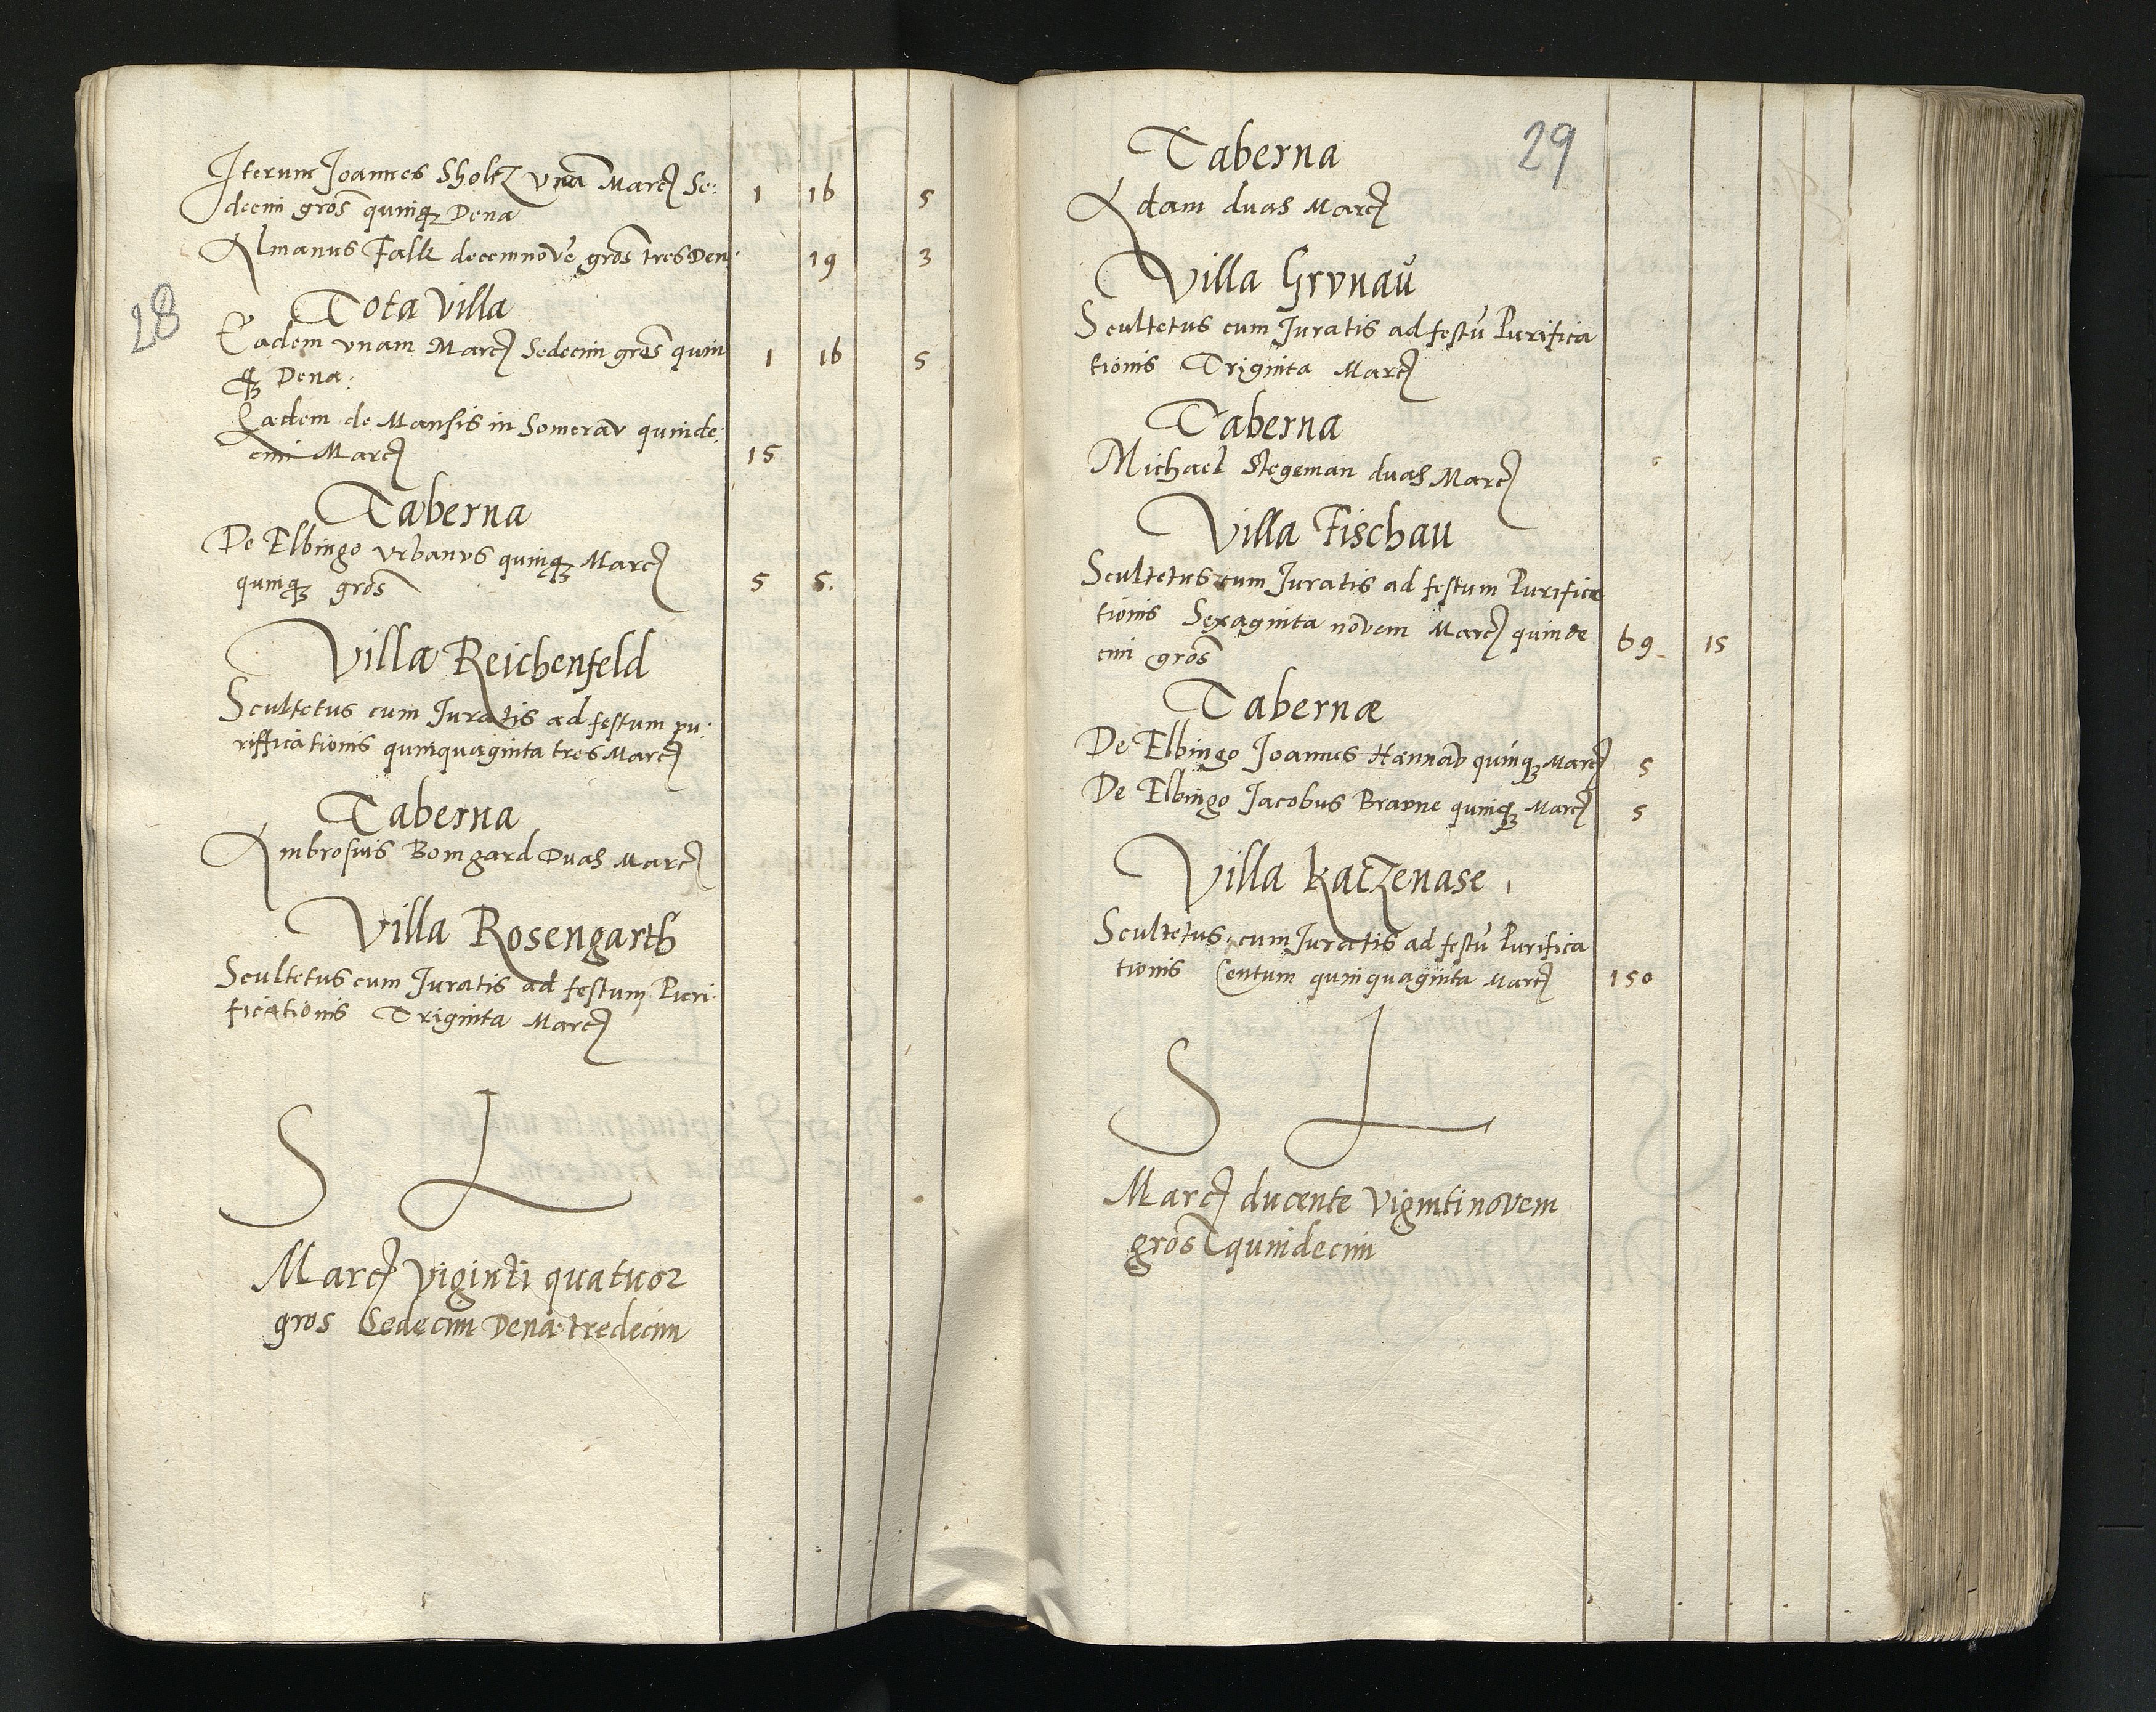 Iterum Joannes Sholtz Vnā Marc Se: 1 16 5
decim gros̄ quinq3 Dena
Almanus Falk decemnovē gros̄ tres Den: 19 3
28
Tota Villa
Eadem vnam Marc Sedecim gros̄ quin 1 16 5
q3 Dena:
Eadem de Mansis in Somerav quinde:
cim Marc 15
Taberna
De Elbingo vrbanvs quinq3 Marc
quinq3 gros̄ 5 5.
Villa Reichenfeld
Scultetus cum Juratis ad festum pu:
rifficationis quinquaginta tres Marc
Taberna
Ambrosius Bomgard Duas Marc
Villa Rosengarth
Scultetus cum Juratis ad festum Puri:
ficationis Triginta Marc
S L
Marc Viginti quatuor
gros Sedecim Dena: tredecim
29
Taberna
Adam duas Marc
Villa Grvnaŭ
Scultetus cum Juratis ad festū Purifica
tionis Triginta Marc
Taberna
Michael Stegeman duas Marc
Villa Fischau
Scultetus cum Juratis ad festum Purifica
tionis Sexaginta novem Marc quinde 69 15
cim gros̄
Tabernæ
De Elbingo Joannes Hannāv quinq3 Marc 5
De Elbingo Jacobus Bravne quinq3 Marc 5
Villa Kaczenase
Scultetus cum Juratis ad festū Purifica
tionis Centum quinquaginta Marc 150
S L
Marc ducente Viginti novem
gros̄ quindecim